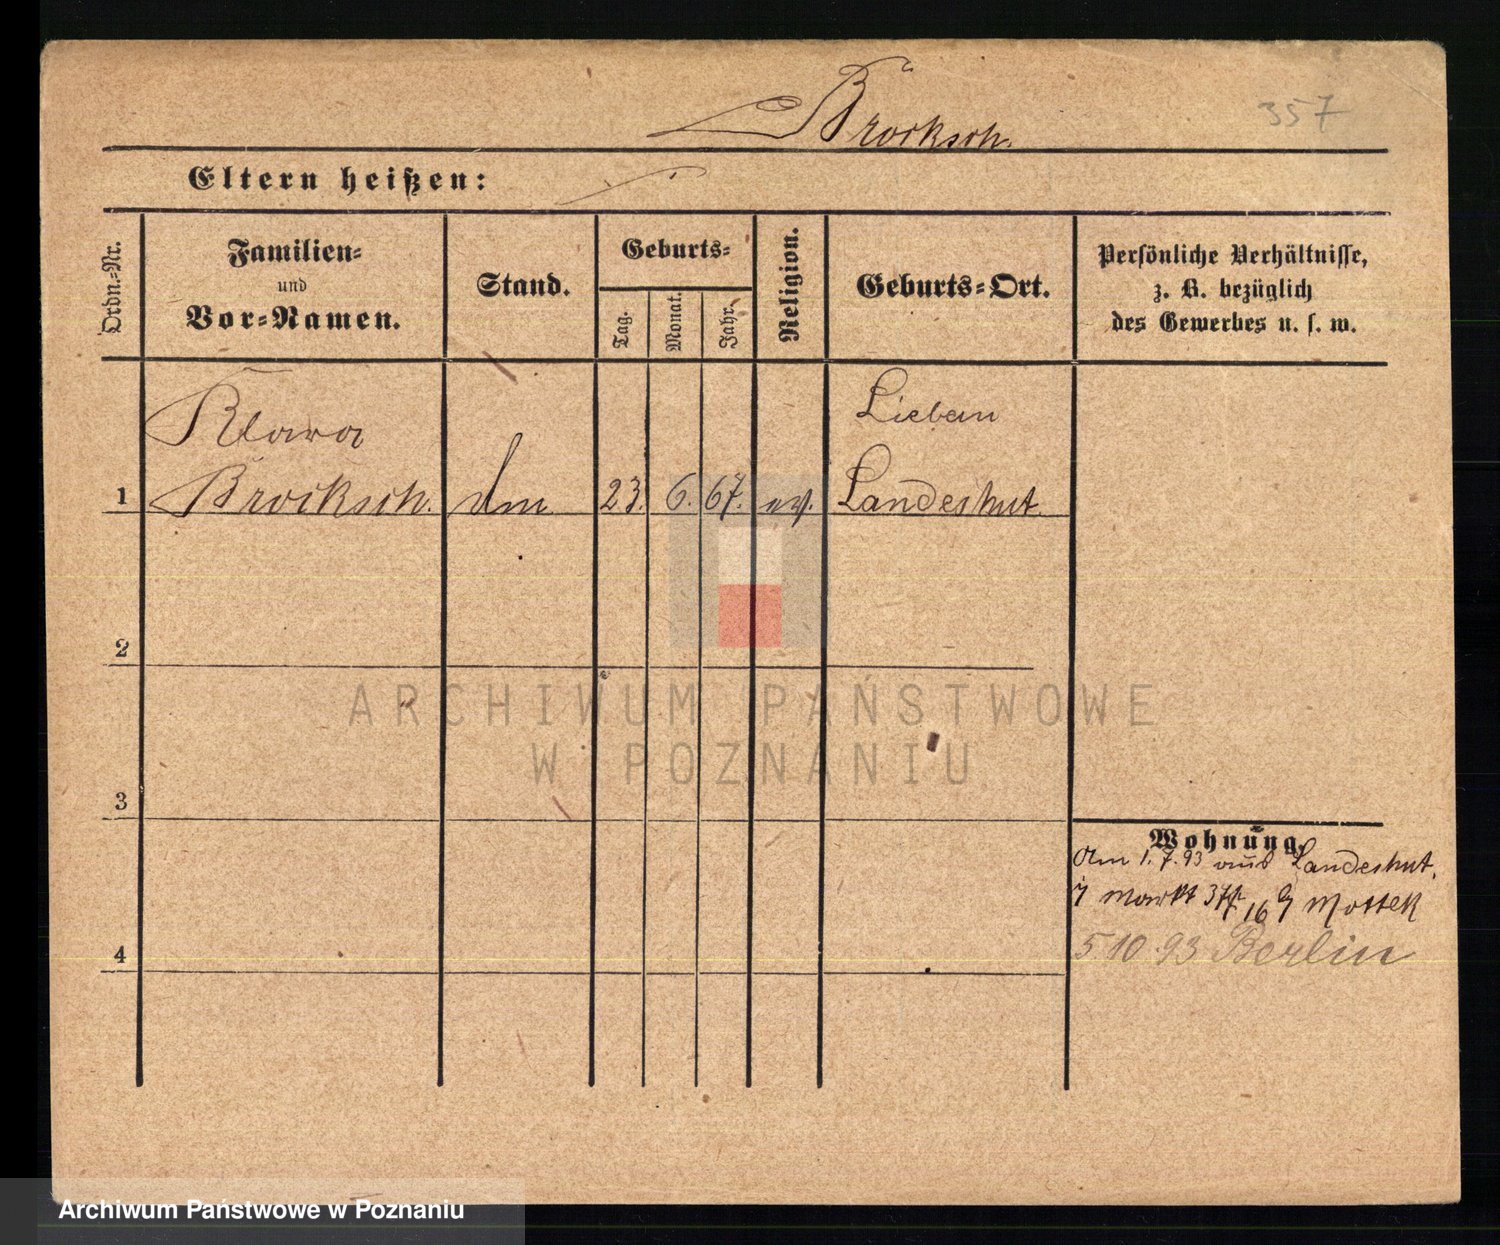 Brocksch.
357
Eltern heißen:
Ordn.-Nr.
Familien-
und
Vor-Namen.
Stand.
Geburts-
Tag.
Monat.
Jahr.
Religion.
Geburts-Ort.
Persönliche Verhältnisse,
z. B. bezüglich
des Gewerbes u. s. w.
Klara
Liebau
1 Brocksch. 23. 6. 67. ev. Landeshut.
2
ARCHIWUM PAŃSTWOWE
W POZNANIU
3
Wohnung.
Am 1.7.93 aus Landeshut.
Markt 37 16 Mottek
4
5.10.93 Berlin
Archiwum Państwowe w Poznaniu